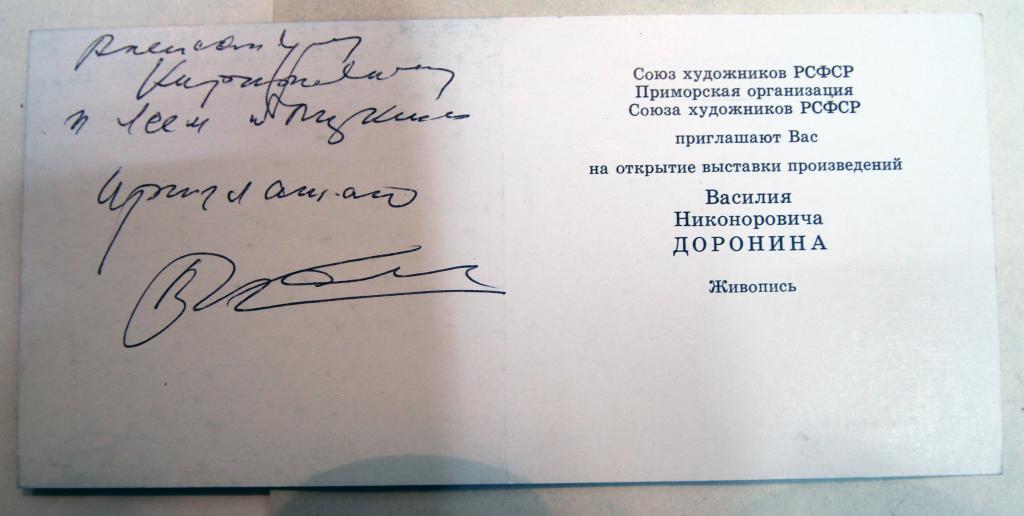 Александру
и всем
приглашаю
Союз художников РСФСР
Приморская организация
Союза художников РСФСР
приглашают Вас
на открытие выставки произведений
Василия
Никоноровича
ДОРОНИНА
Живопись